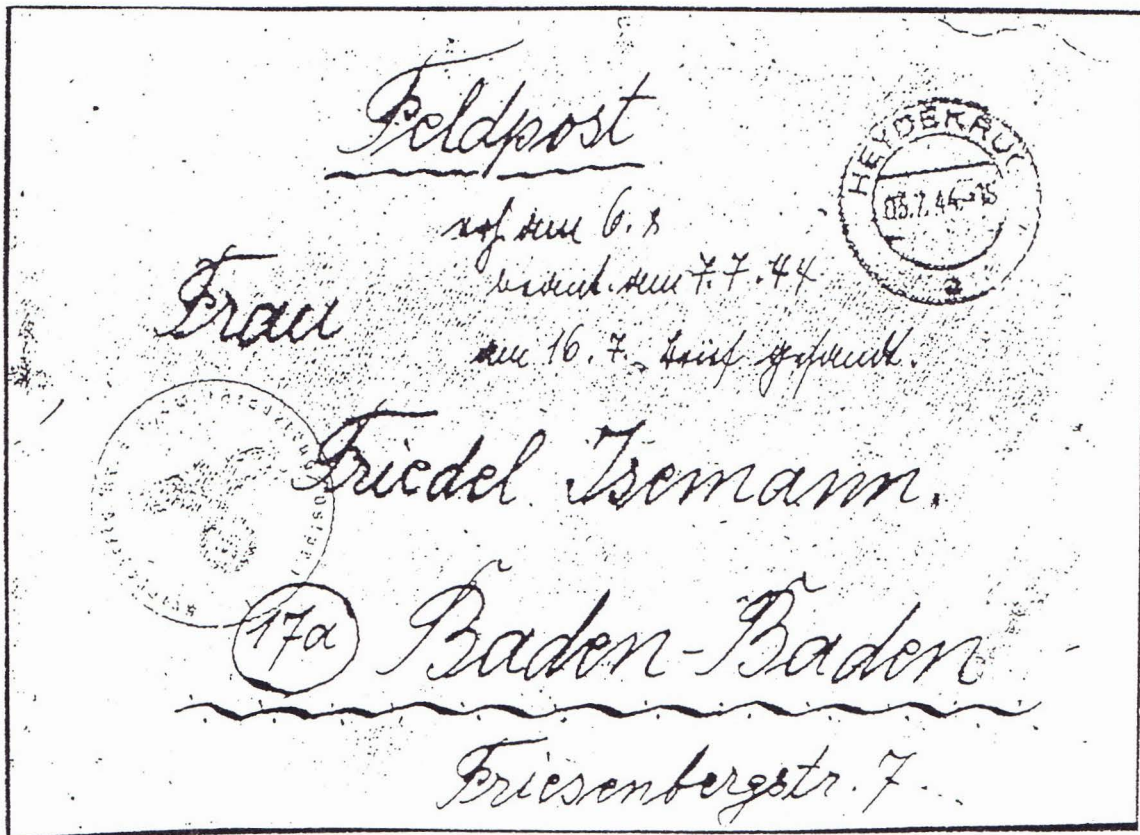 Feldpost
HEYDEKRUG
03.7.44-15
a
am 6.
am 7.7.44
Frau
am 16.7. Brief gesandt.
Friedel Isemann.
17a Baden-Baden
Friesenbergstr. 7